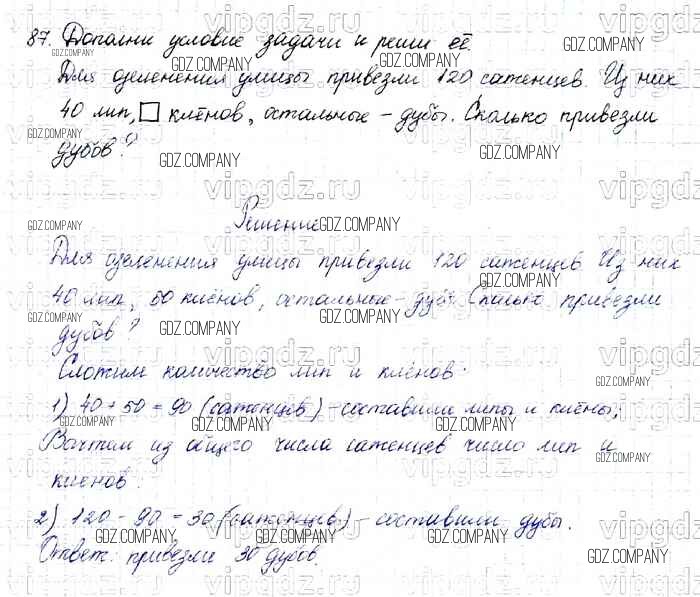 87. Дополни условие задачи и реши её.
Для озеленения улицы привезли 120 саженцев. Из них
40 лип, □ клёнов, остальные – дубы. Сколько привезли
дубов?
Решение
Для озеленения улицы привезли 120 саженцев. Из них
40 лип, 50 клёнов, остальные – дубы. Сколько привезли
дубов?
Сложим количество лип и клёнов:
1) 40 + 50 = 90 (саженцев) – составили липы и клёны;
Вычтем из общего числа саженцев число лип и
клёнов.
2) 120 - 90 = 30 (саженцев) – составили дубы.
Ответ: привезли 30 дубов.
vipgdz.ru
GDZ.COMPANY